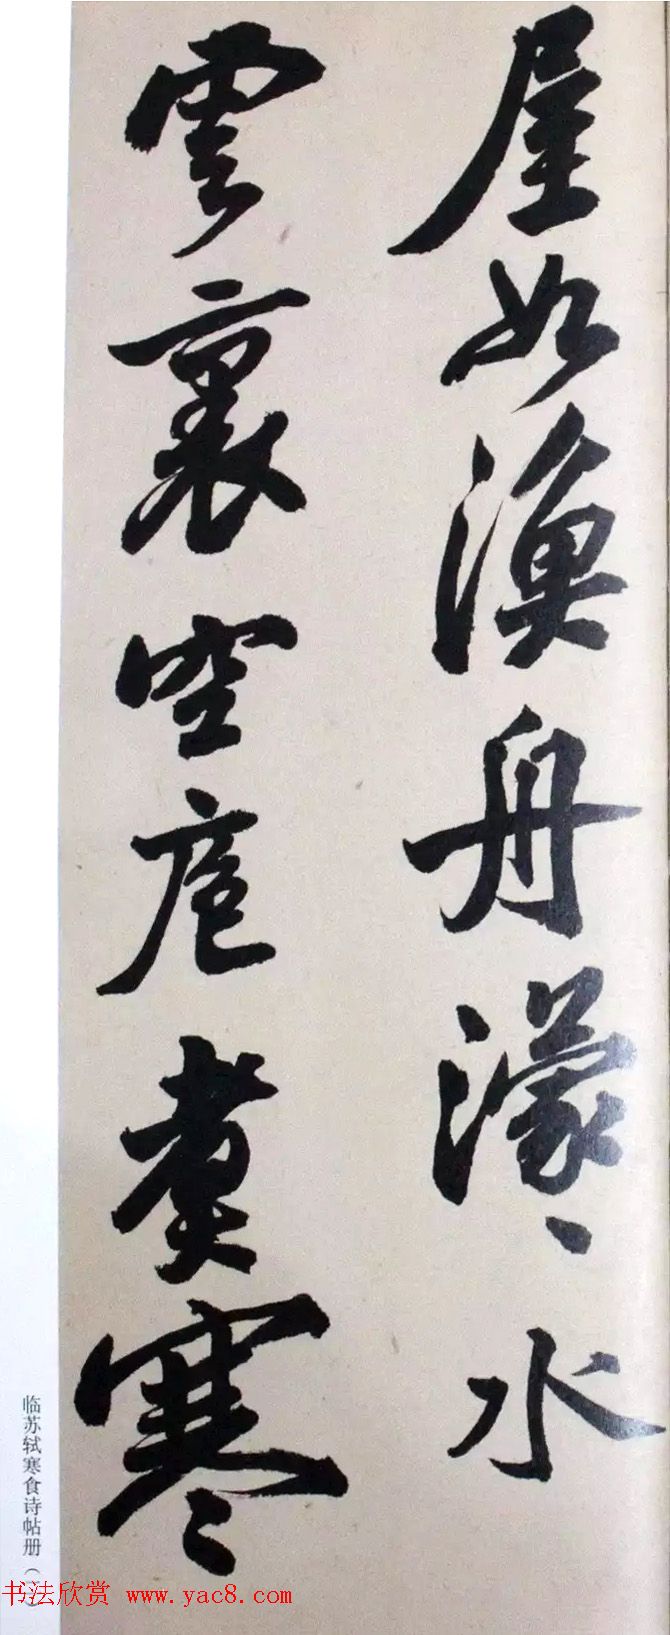 屋如漁舟濛々水
雲裏空庖煮寒
临苏轼寒食诗帖册
书法欣赏 www.yac8.com